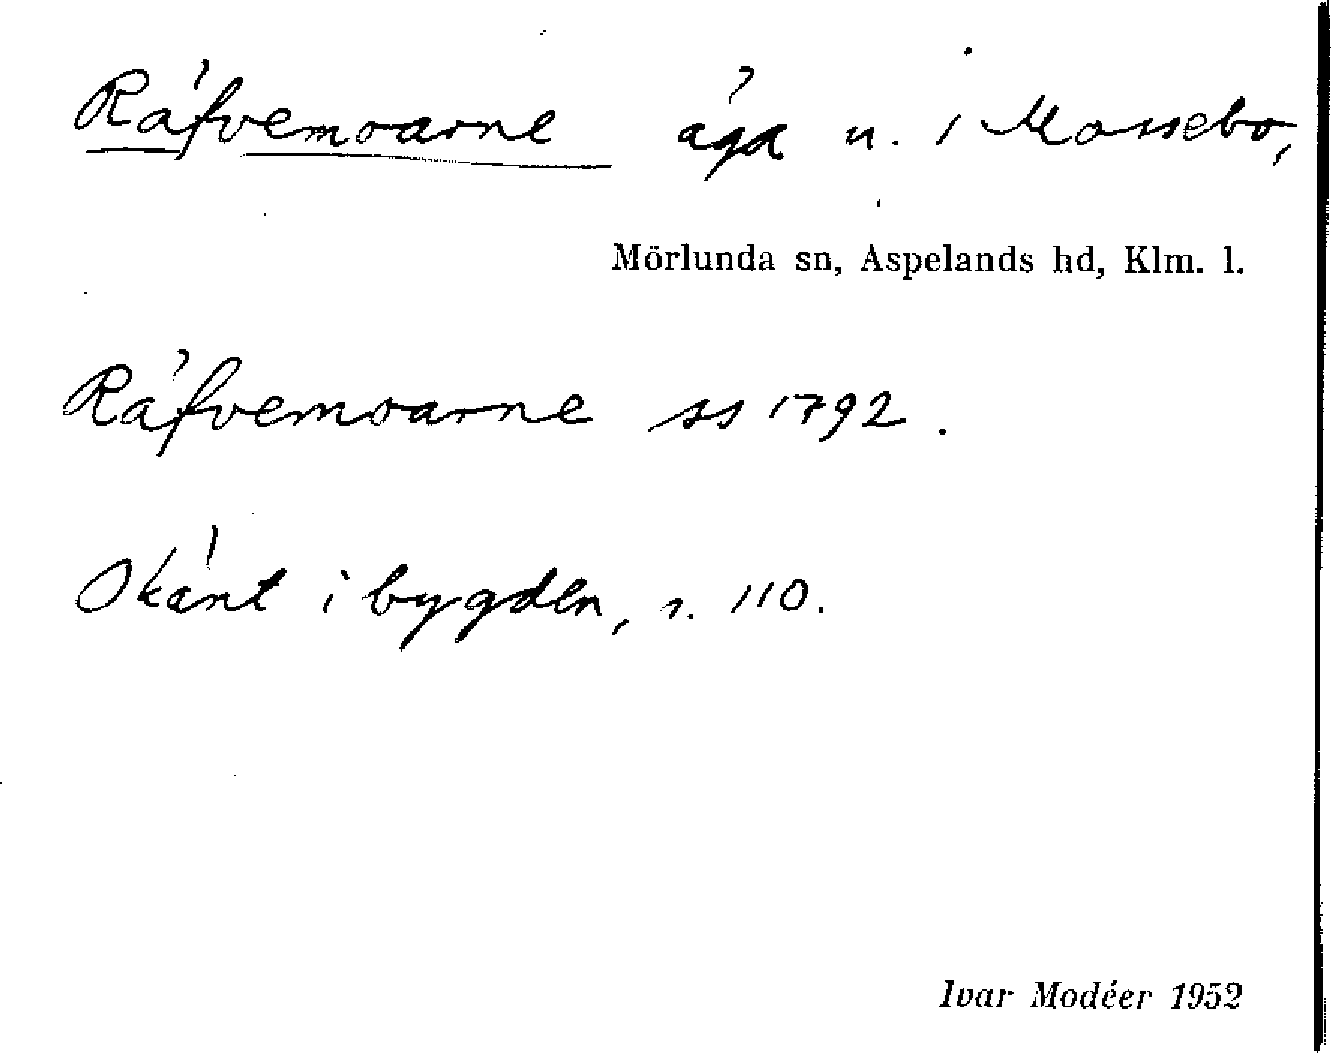 Räfvemoarne äga u. i Mossebo,
Mörlunda sn, Aspelands hd, Klm. l.
Räfvemoarne ss 1792.
Okänt i bygden, s. 110.
Ivar Modéer 1952